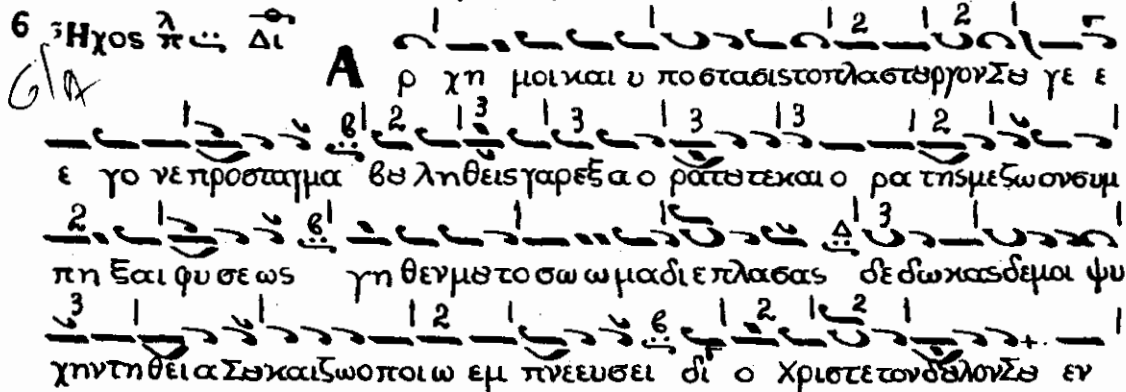 6 Ἦχος λ π Δι
G/A
Α ρ χη μοι και υ ποστασις το πλαστȣργον Σȣ γε ε
ε γο νε προσταγμα βȣ ληθεις γαρ εξ α ο ρατȣ τε και ο ρα της με ζωον συμ
πη ξαι φυ σε ως γη θεν μȣ το σω ω μα διε πλασας δε δωκας δε μοι ψυ
χην τη θει α Σȣ και ζωοποι ω εμ πνεευσει δι ο Χριστε τον δȣλον Σȣ εν